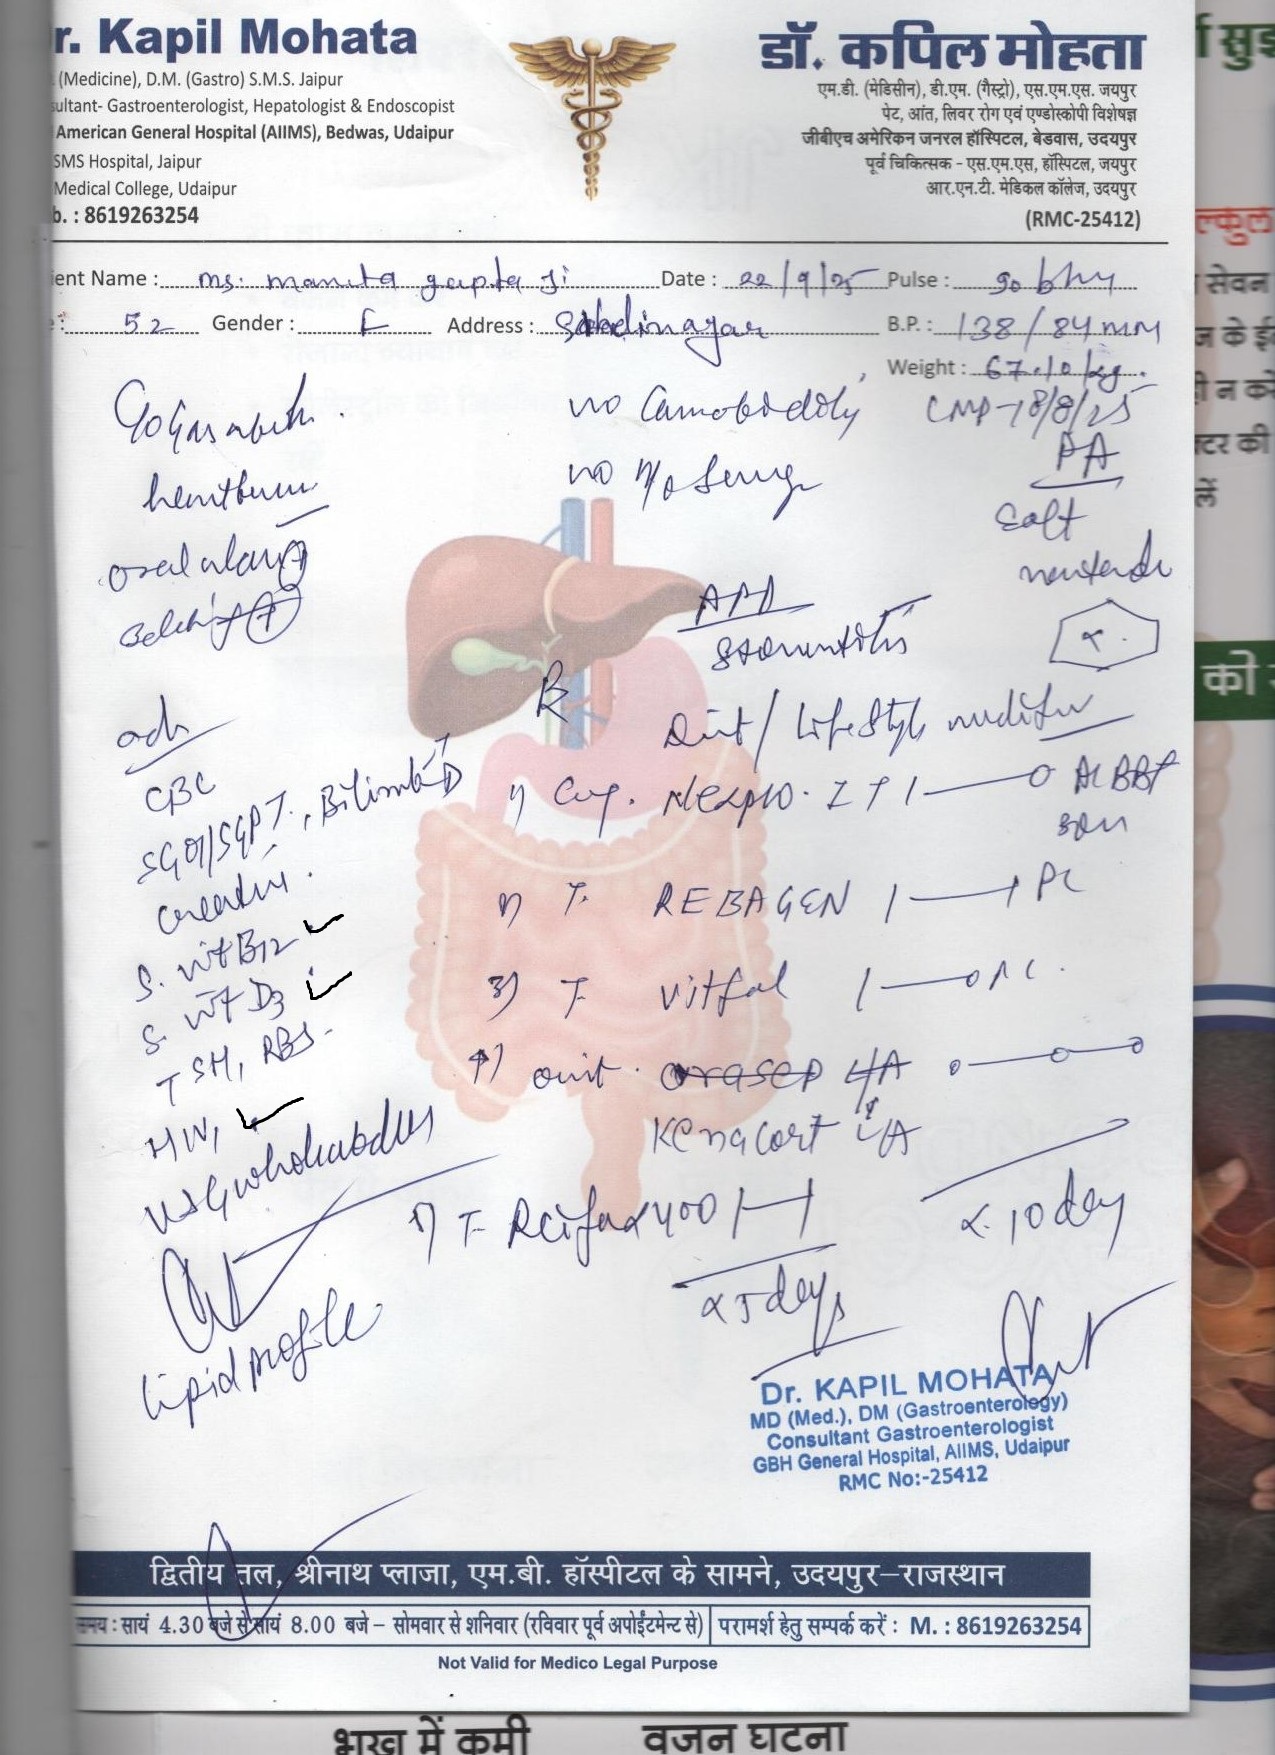 r. Kapil Mohata
(Medicine), D.M. (Gastro) S.M.S. Jaipur
sultant- Gastroenterologist, Hepatologist & Endoscopist
American General Hospital (AIIMS), Bedwas, Udaipur
SMS Hospital, Jaipur
Medical College, Udaipur
b. : 8619263254
डॉ. कपिल मोहता
एम.डी. (मेडिसीन), डी.एम. (गैस्ट्रो), एस.एम.एस. जयपुर
पेट, आंत, लिवर रोग एवं एण्डोस्कोपी विशेषज्ञ
जीबीएच अमेरिकन जनरल हॉस्पिटल, बेडवास, उदयपुर
पूर्व चिकित्सक - एस.एम.एस, हॉस्पिटल, जयपुर
आर.एन.टी. मेडिकल कॉलेज, उदयपुर
(RMC-25412)
ient Name : ms. mamta gupta Ji Date : 22/9/25 Pulse : 90 bhm
: 52 Gender : F Address : B.P. : 138/84 mm
Weight : 67.10 kg.
no Comobiddity
18/8/25
no H/o
PA
heartburn
Soft
nontender
oral ulcer +
Belching +
APD
Stomatitis
R
adv
Diet / Lifestyle
CBC
SGOT/SGPT, Bilirubin T D
1) Cap. Nexpro. 1 — 0 AC BBF
creatinine.
T. REBAGEN 1 — 1 PC
S. vit B12 ✓
S. vit D3 ✓
3) T. vitfal 1 — 0 PC.
TSH, RBS
4) oint. orasep L/A 0 — 0 — 0
Kenacort L/A
USG whole abdomen
x 10 day
T. Rcifax 400 1 — 1
x 5 days
lipid profile
Dr. KAPIL MOHATA
MD (Med.), DM (Gastroenterology)
Consultant Gastroenterologist
GBH General Hospital, AIIMS, Udaipur
RMC No:-25412
द्वितीय तल, श्रीनाथ प्लाजा, एम.बी. हॉस्पीटल के सामने, उदयपुर-राजस्थान
समय : सायं 4.30 बजे से सायं 8.00 बजे - सोमवार से शनिवार (रविवार पूर्व अपोईंटमेन्ट से) परामर्श हेतु सम्पर्क करें : M. : 8619263254
Not Valid for Medico Legal Purpose
भूख में कमी वजन घटना
सेवन
टर की
लें
को